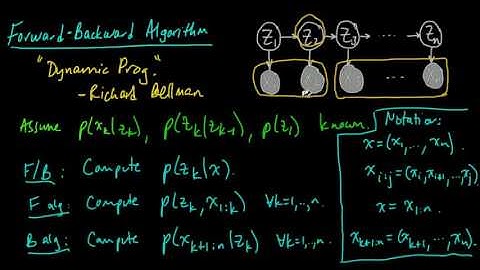 Forward-Backward Algorithm
"Dynamic Prog."
- Richard Bellman
z₁ z₂ z₃ ... zₙ
Assume p(xₖ|zₖ), p(zₖ|zₖ₋₁), p(z₁) known.
F/B: Compute p(zₖ|x).
F alg: Compute p(zₖ, x₁:ₖ) ∀k=1,..,n.
B alg: Compute p(xₖ₊₁:ₙ|zₖ) ∀k=1,..,n.
Notation:
x = (x₁,..., xₙ).
xᵢ:ⱼ = (xᵢ, xᵢ₊₁,..., xⱼ)
x = x₁:ₙ.
xₖ₊₁:ₙ = (xₖ₊₁,..., xₙ).